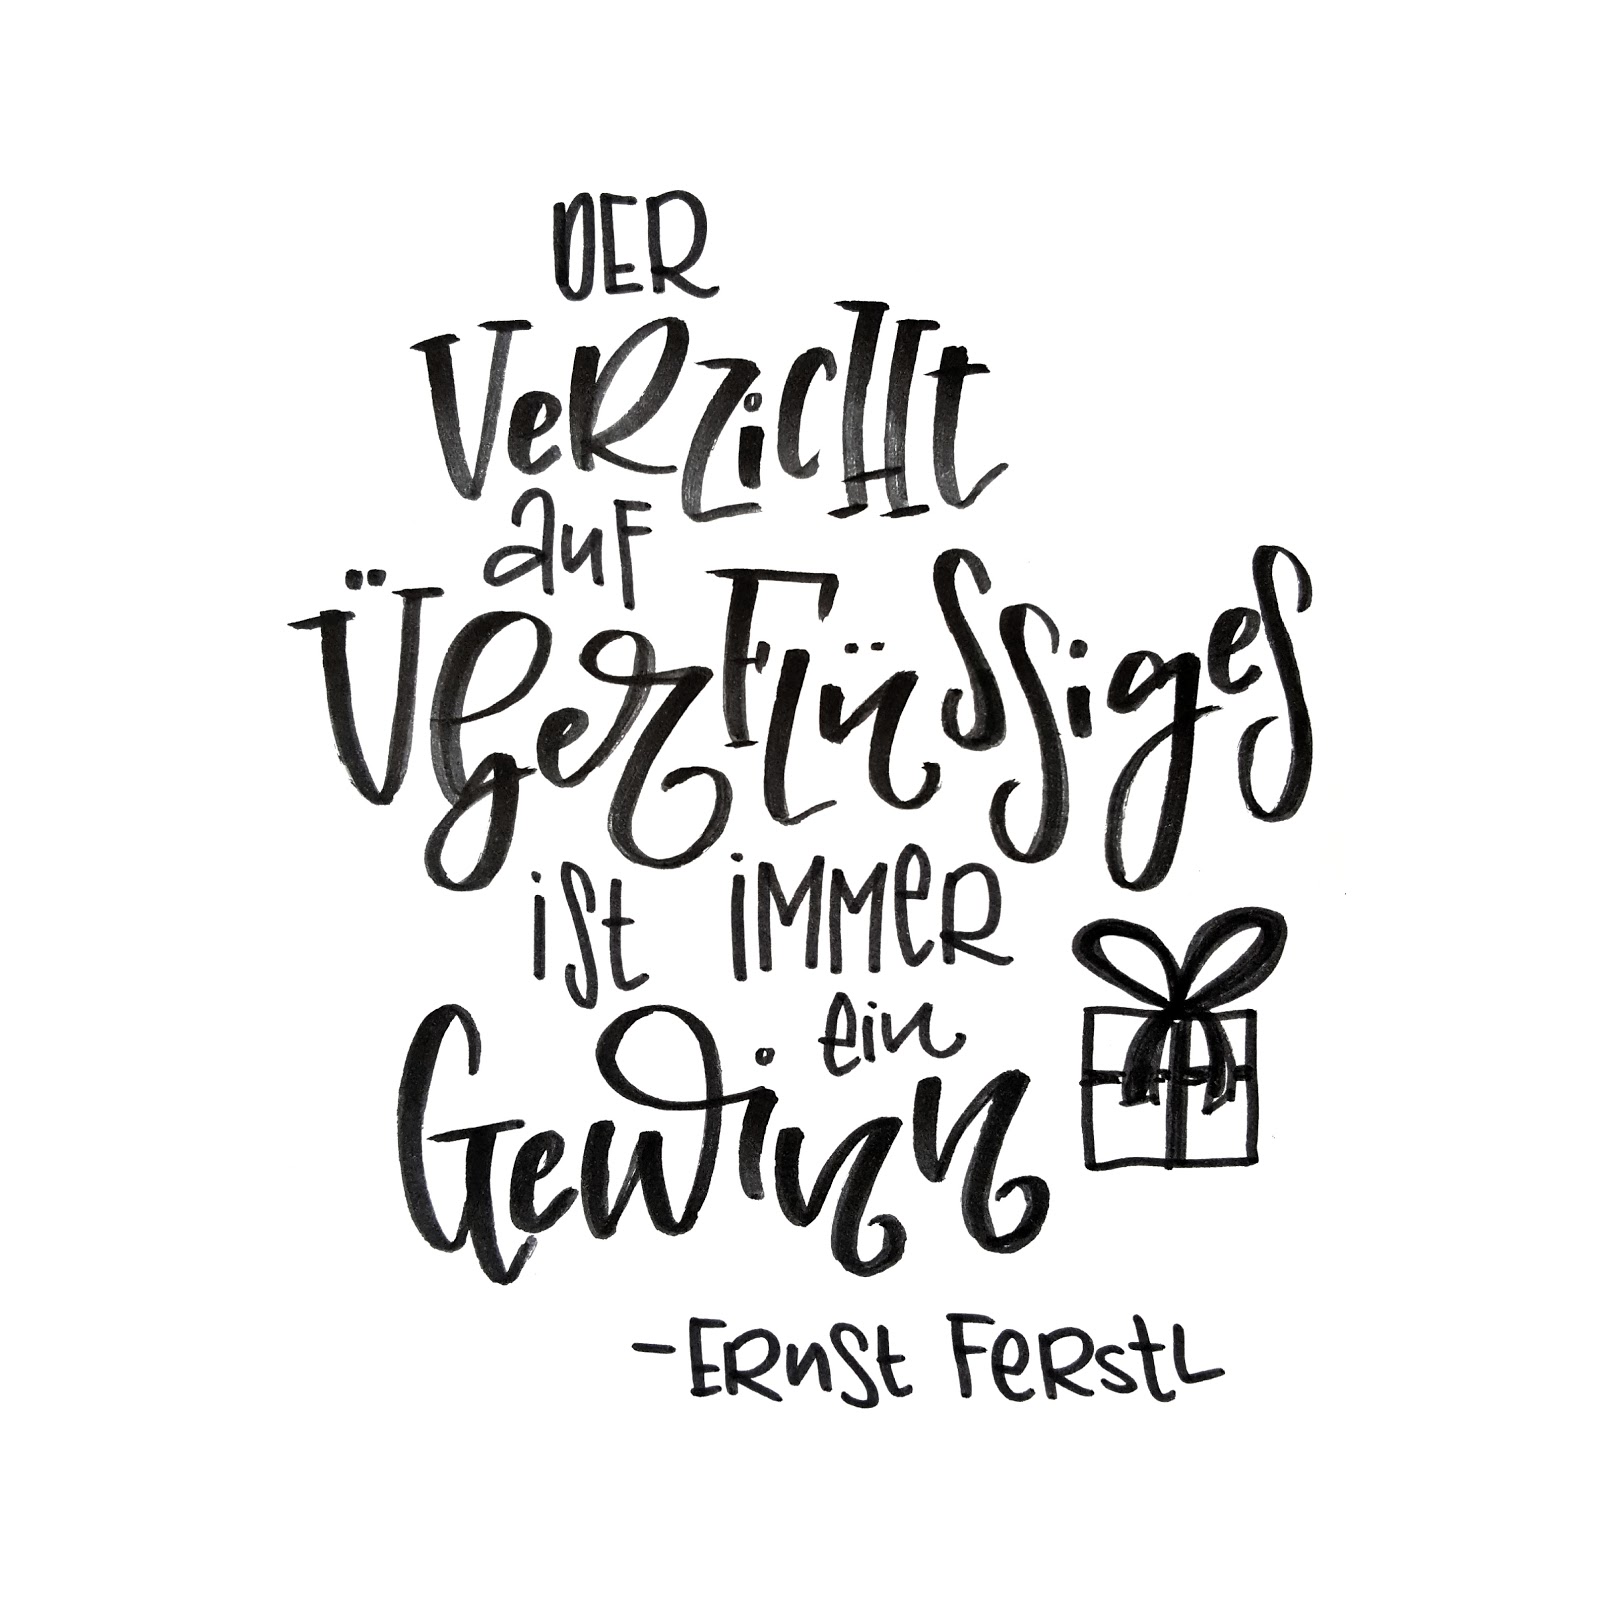 DER
VeRzicHt
auF
ÜberFlüssiges
ist iMMeR
ein
Gewinn
- ERnst FeRstL